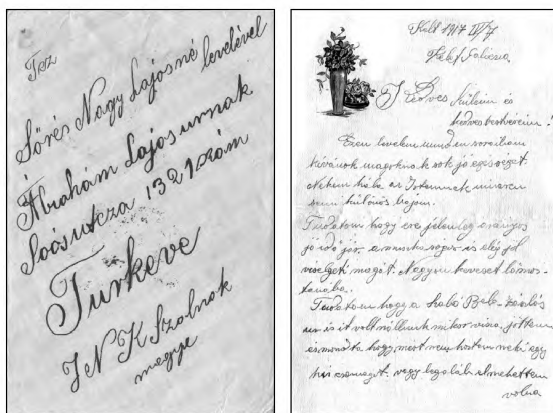 Tisz
Sőrés Nagy Lajosné levelével
Ábrahám Lajos urnak
Soós utcza 1321 szám
Turkeve
J N K Szolnok
megye
Kelt 1917 IV/7
Kedves szüleim és
kedves testvéreim!
Ezen levelem minden soraiban
kivánok magoknak sok jó egésséget.
Nekem hála az Istennek nincsen
semi külónós bajom.
Tudatom hogy ere jelenleg arányos
jó idő jár. a muszka is elég jól
viselgeti magát. Nagyon keveset lámos-
Tudatom hogy a Szabó Bek Károlÿ
ur is it volt nállunk mikor vissza jöttem
és mondta hogy mért nem hoztam neki egy
kis csomagot. vagy legaláb elmehettem
volna